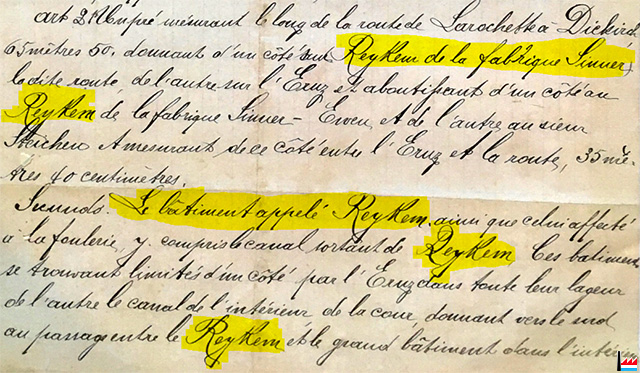 art 2. Un pré mesurant le long de la route de Larochette à Diekirch
65 mètres 50, donnant d'un côté sur Reykem de la fabrique Sinner,
ladite route, de l'autre sur l'Ernz et aboutissant d'un côté au
Reykem de la fabrique Sinner - Ewen, et de l'autre au sieur
Steichen A mesurant de ce côté entre l'Ernz et la route, 35 mè-
tres 40 centimètres.
Secundo. Le bâtiment appelé Reykem, ainsi que celui affecté
à la foulerie, y compris le canal sortant de Reykem Ces batiment
se trouvant limités d'un côté par l'Ernz dans toute leur lageur
de l'autre le canal de l'intérieur de la cour, donnant vers le sud
au passage entre le Reykem et le grand bâtiment dans l'intéri